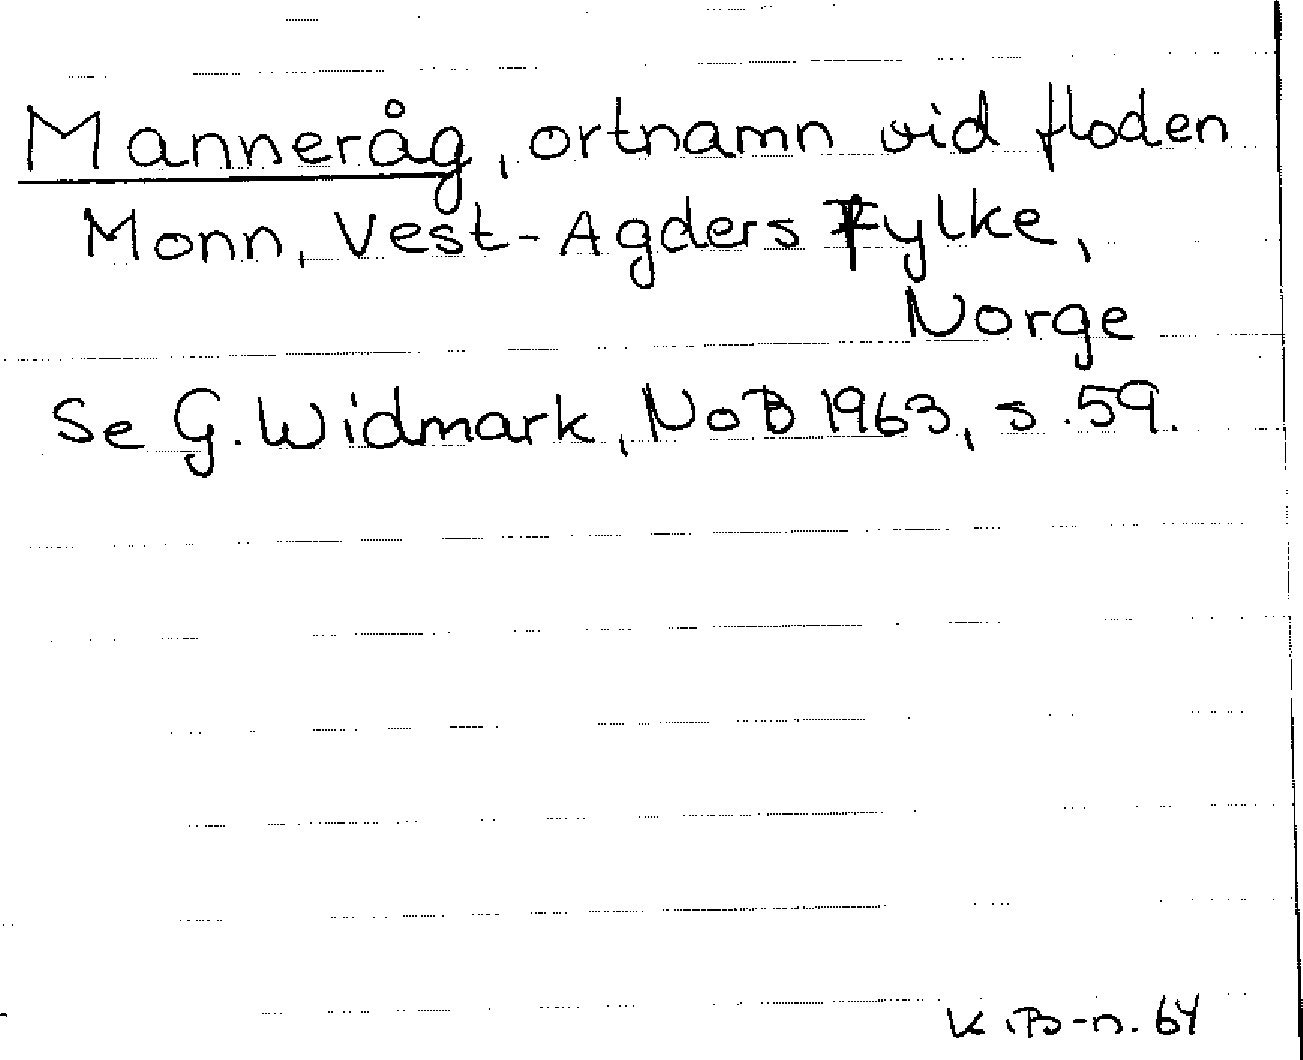 Manneråg, ortnamn vid floden
Monn, Vest-Agders Fylke,
Norge
Se G. Widmark, NoB 1963, s. 59.
K. B-n. 64